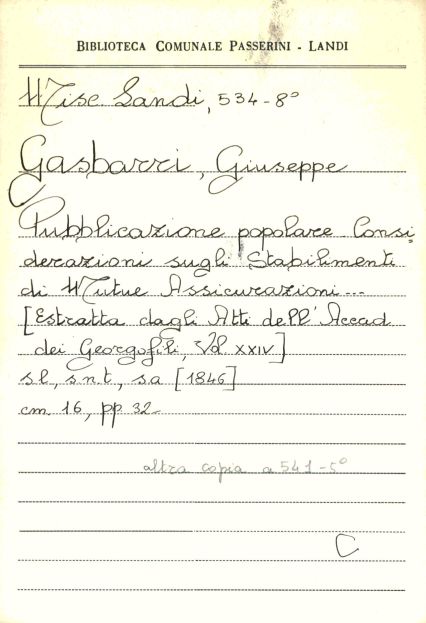 BIBLIOTECA COMUNALE PASSERINI - LANDI
Misc Landi, 534-8°
Gasbarri, Giuseppe
Pubblicazione popolare Consi,
derazioni sugli Stabilimenti
di Mutue Assicurazioni...
[Estratta dagli Atti dell' Accad
dei Georgofili, Vol. XXIV]
s.l., s.n.t., s.a [1846]
cm. 16, pp. 32-
altra copia a 541-5°
C